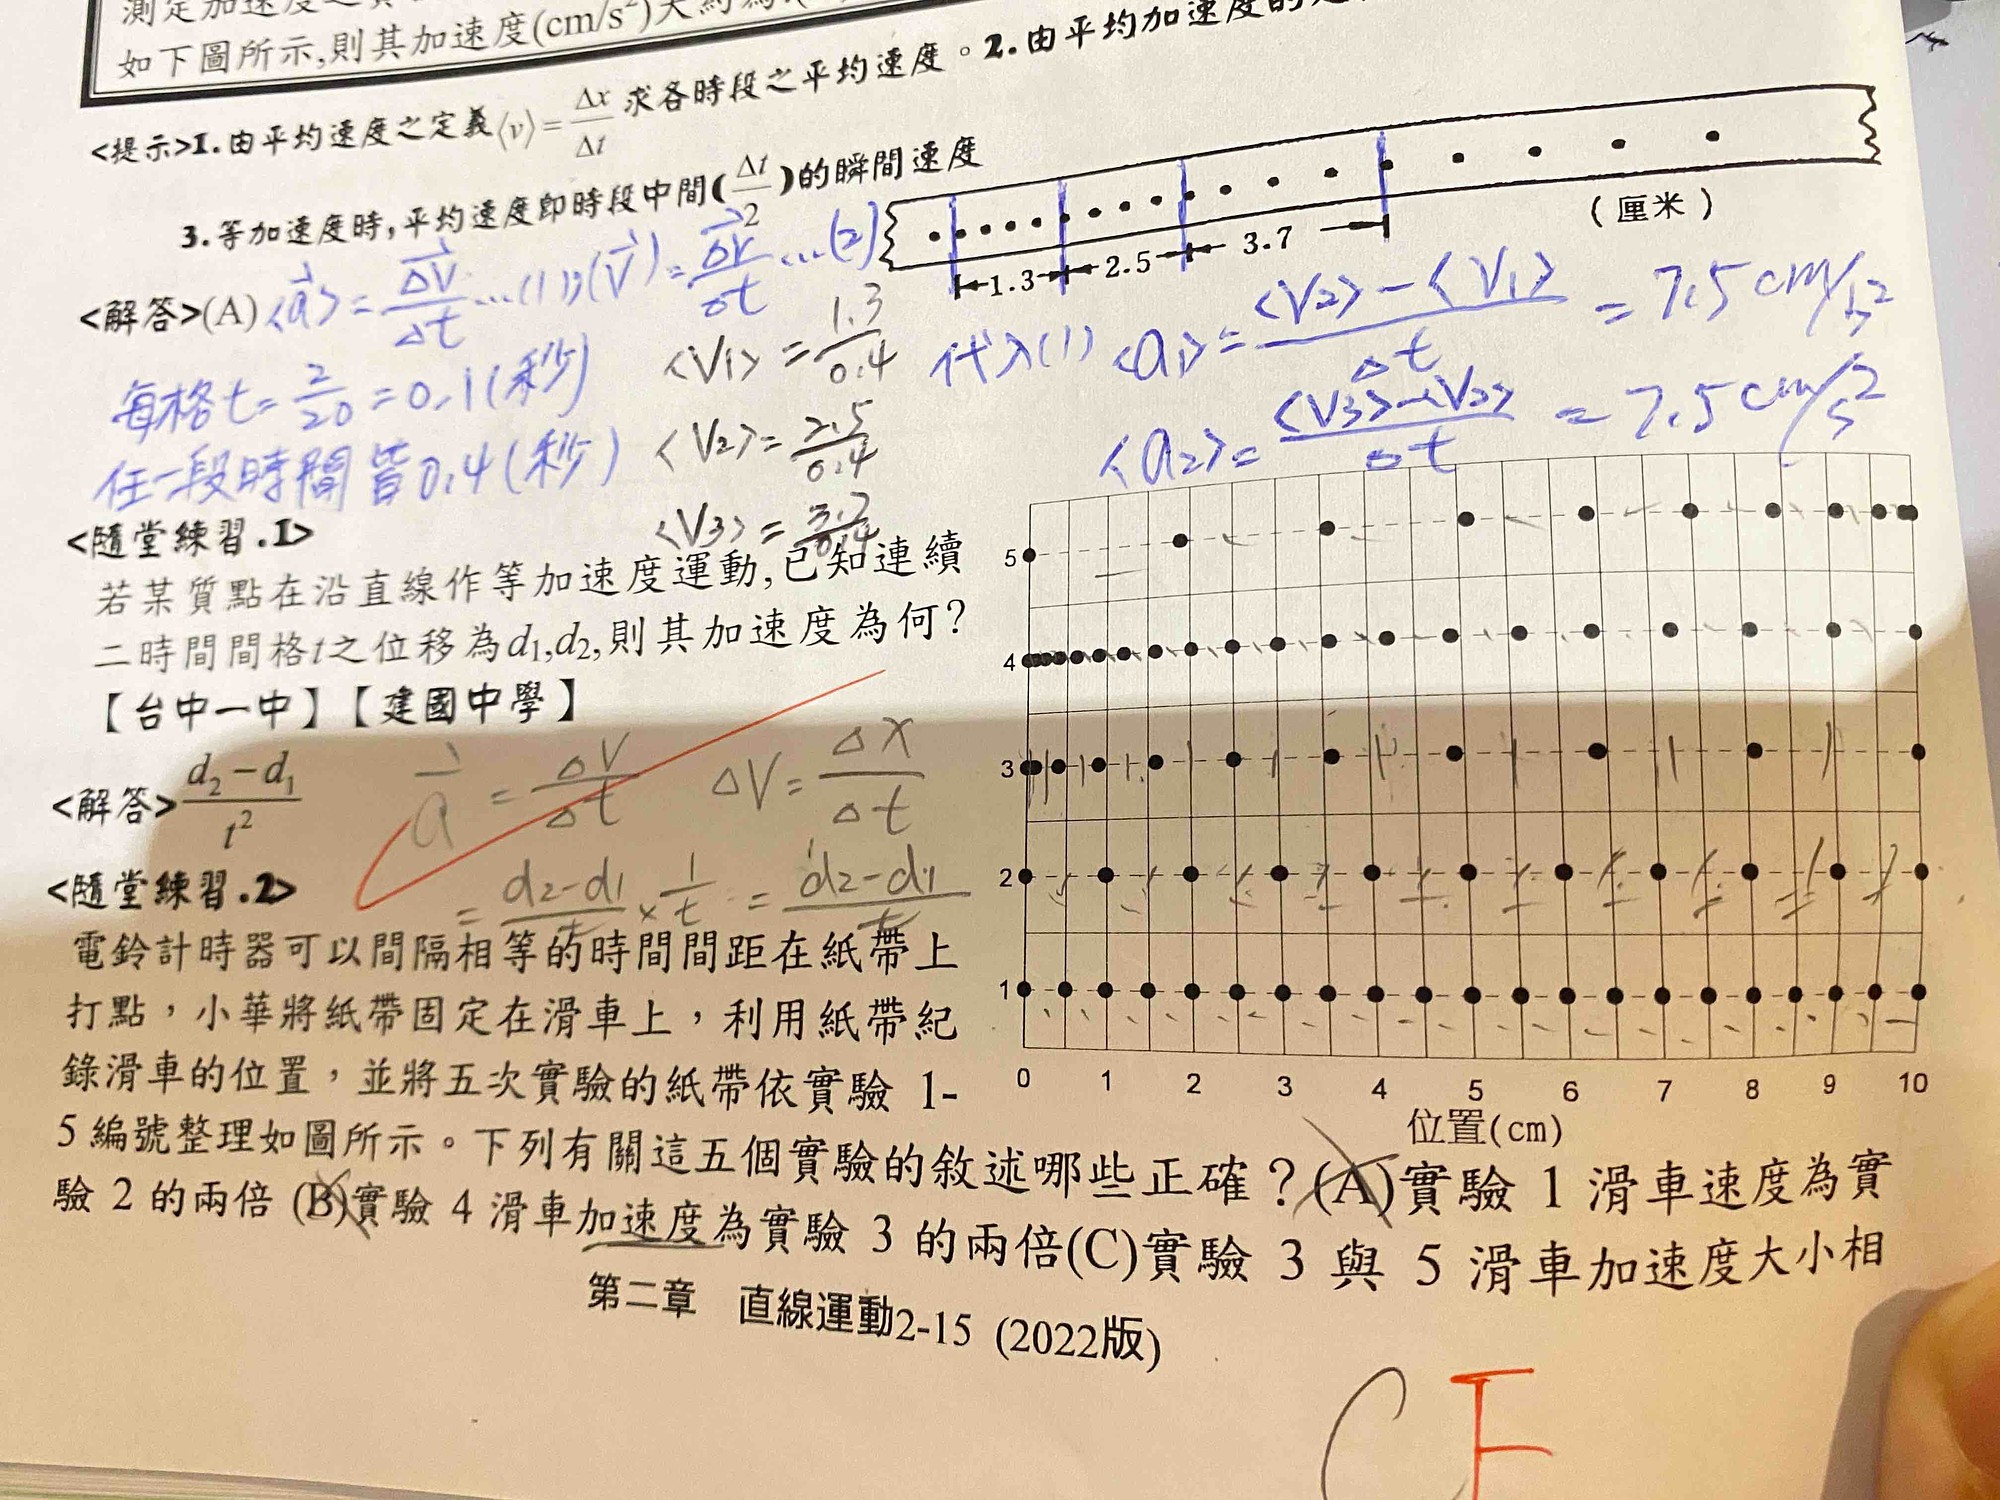 測定加速度之
如下圖所示,則其加速度(cm/s²)大約為
<提示>1.由平均速度之定義⟨v⟩=Δx/Δt 求各時段之平均速度。2.由平均加速度的
3.等加速度時,平均速度即時段中間(Δt/2)的瞬間速度
(厘米)
1.3 2.5 3.7
<解答>(A) ⟨a⃗⟩=ΔV⃗/Δt…(1);⟨V⃗⟩=Δr⃗/Δt…(2)
⟨V1⟩=1.3/0.4 代入(1) ⟨a1⟩=(⟨V2⟩-⟨V1⟩)/Δt=7.5cm/s²
每格t=2/20=0.1(秒)
⟨V2⟩=2.5/0.4 ⟨a2⟩=(⟨V3⟩-⟨V2⟩)/Δt=7.5cm/s²
任一段時間皆0.4(秒)
⟨V3⟩=3.7/0.4
<隨堂練習.1>
若某質點在沿直線作等加速度運動,已知連續
二時間間格t之位移為d₁,d₂,則其加速度為何?
【台中一中】【建國中學】
<解答>(d₂-d₁)/t² a⃗=ΔV/Δt ΔV=ΔX/Δt
=(d2-d1)/t×1/t=(d2-d1)/t²
<隨堂練習.2>
電鈴計時器可以間隔相等的時間間距在紙帶上
打點,小華將紙帶固定在滑車上,利用紙帶紀
錄滑車的位置,並將五次實驗的紙帶依實驗 1-
5 編號整理如圖所示。下列有關這五個實驗的敘述哪些正確?(A)實驗 1 滑車速度為實
驗 2 的兩倍 (B)實驗 4 滑車加速度為實驗 3 的兩倍(C)實驗 3 與 5 滑車加速度大小相
5
4
3
2
1
0 1 2 3 4 5 6 7 8 9 10
位置(cm)
第二章 直線運動2-15 (2022版)
C E